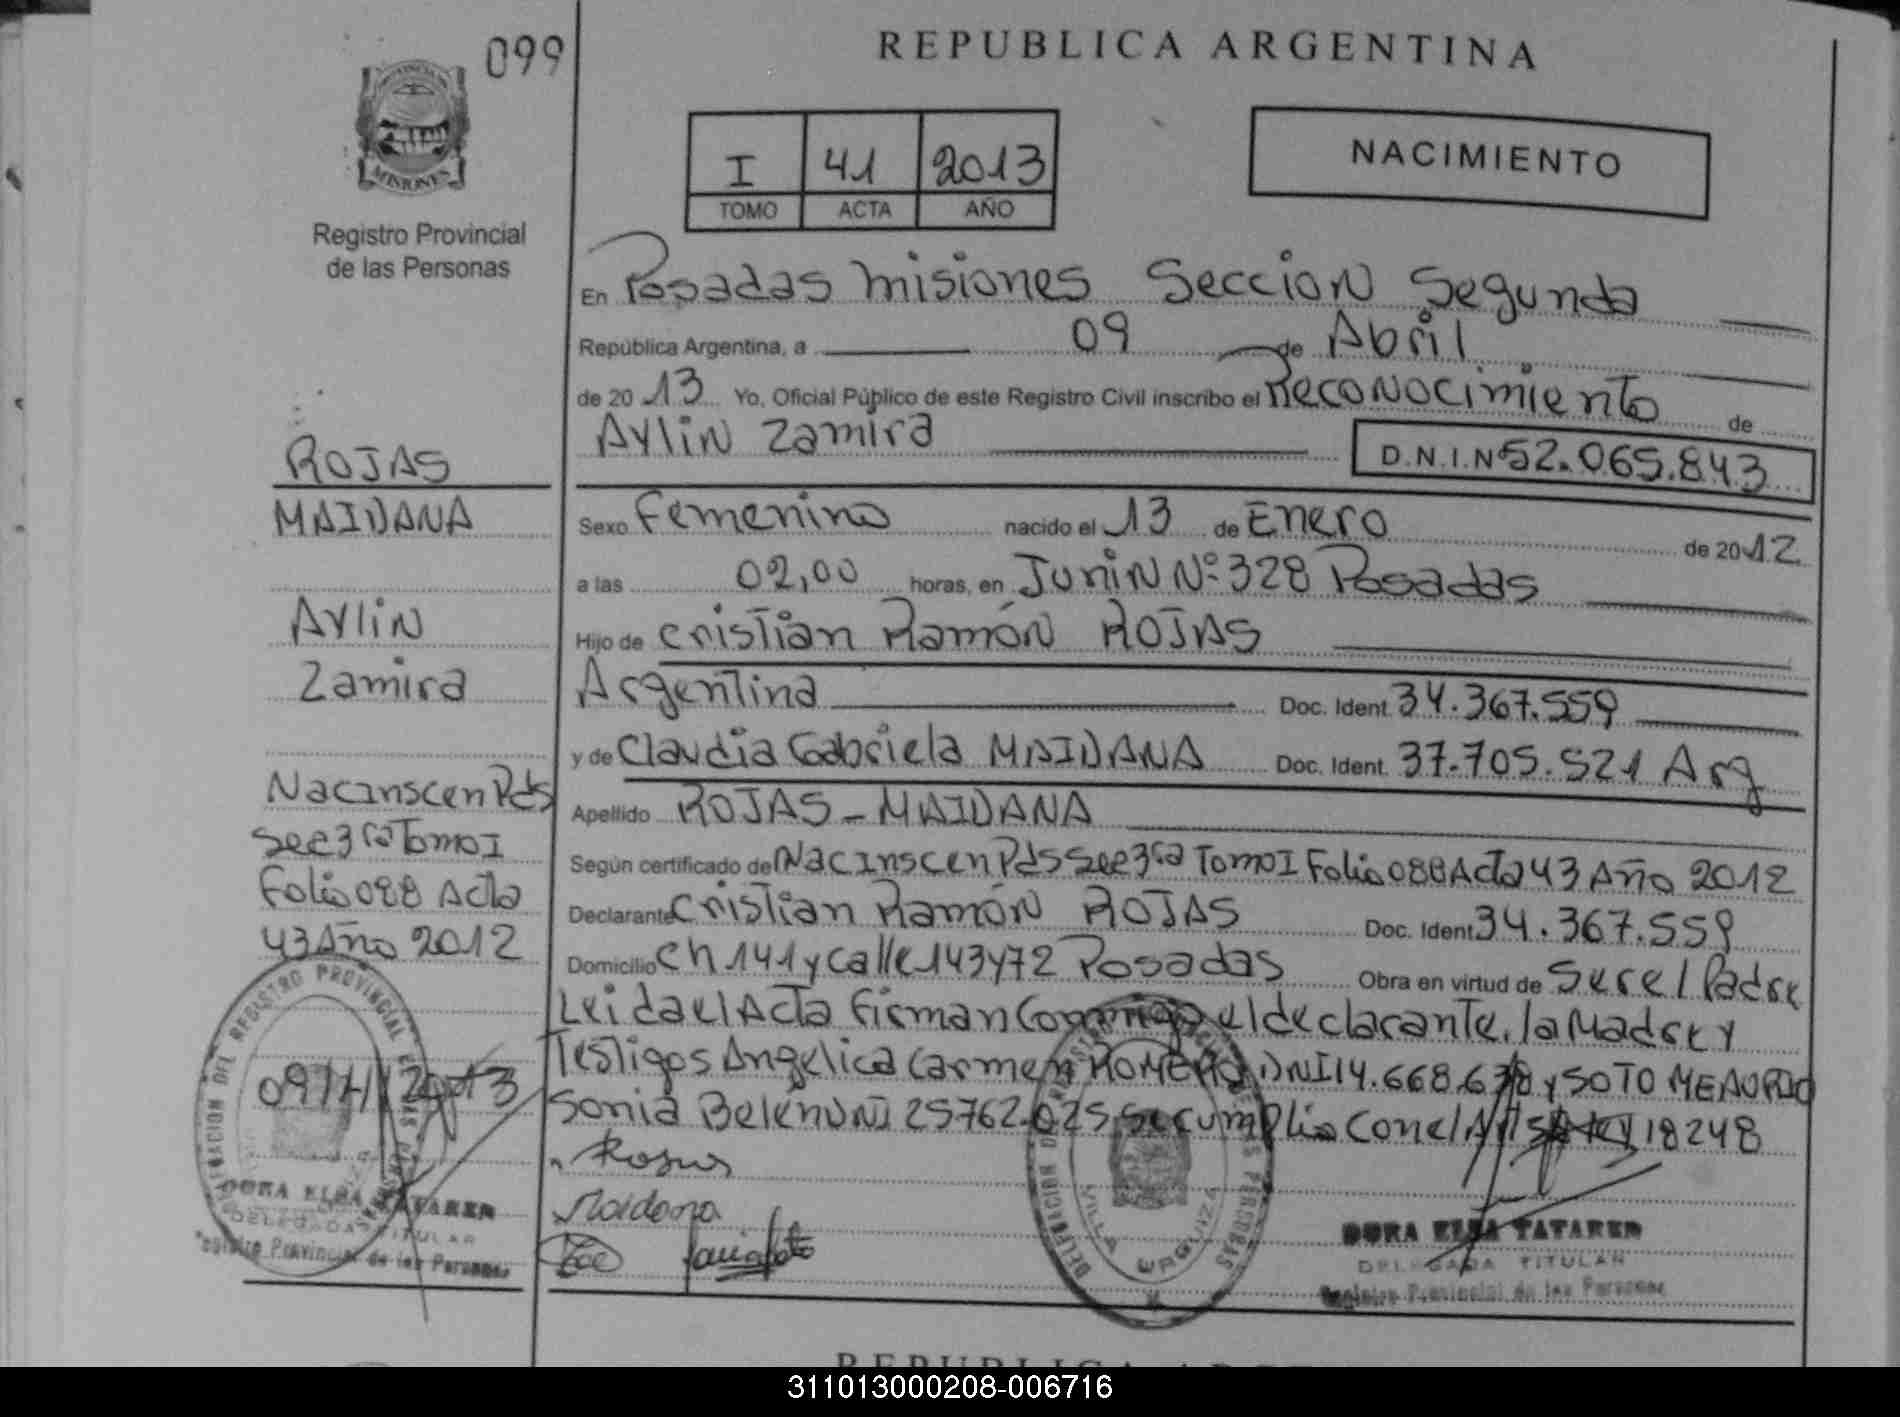 099
REPUBLICA ARGENTINA
PROVINCIA DE
MISIONES
Registro Provincial
de las Personas
I 41 2013
TOMO ACTA AÑO
NACIMIENTO
En Posadas Misiones Seccion Segunda
República Argentina, a 09 de Abril
de 2013 Yo, Oficial Público de este Registro Civil inscribo el Reconocimiento de
Aylin Zamira
D.N.I.Nº 52.065.843
ROJAS
MAIDANA
Aylin
Zamira
Nac Inscen Pds
Sec 3ra Tomo I
Folio 088 Acta
43 Año 2012
Sexo Femenino nacido el 13 de Enero de 2012
a las 02,00 horas, en Junin Nº 328 Posadas
Hijo de Cristian Ramón ROJAS
Argentina Doc. Ident. 34.367.559
y de Claudia Gabriela MAIDANA Doc. Ident. 37.705.521 Arg
Apellido ROJAS - MAIDANA
Según certificado de Nac Inscen Pds Sec 3ra Tomo I Folio 088 Acta 43 Año 2012
Declarante Cristian Ramón ROJAS Doc. Ident. 34.367.559
Domicilio Ch 141 y calle 143 y 72 Posadas Obra en virtud de Ser el Padre
Leida el Acta Firman Conmigo el declarante, la Madre y
Testigos Angelica Carmen ROMERO DNI 14.668.638 y SOTO
Sonia Belen DNI 25762.025 Se cumplio Con el Art 18248
Rojas
Maidana
09/4/2013
DELEGACION DEL REGISTRO PROVINCIAL DE LAS PERSONAS
DORA ELBA TATAREN
DELEGADA TITULAR
Registro Provincial de las Personas
DELEGACION DEL REGISTRO PROVINCIAL DE LAS PERSONAS
VILLA URQUIZA
DORA ELBA TATAREN
DELEGADA TITULAR
Registro Provincial de las Personas
311013000208-006716